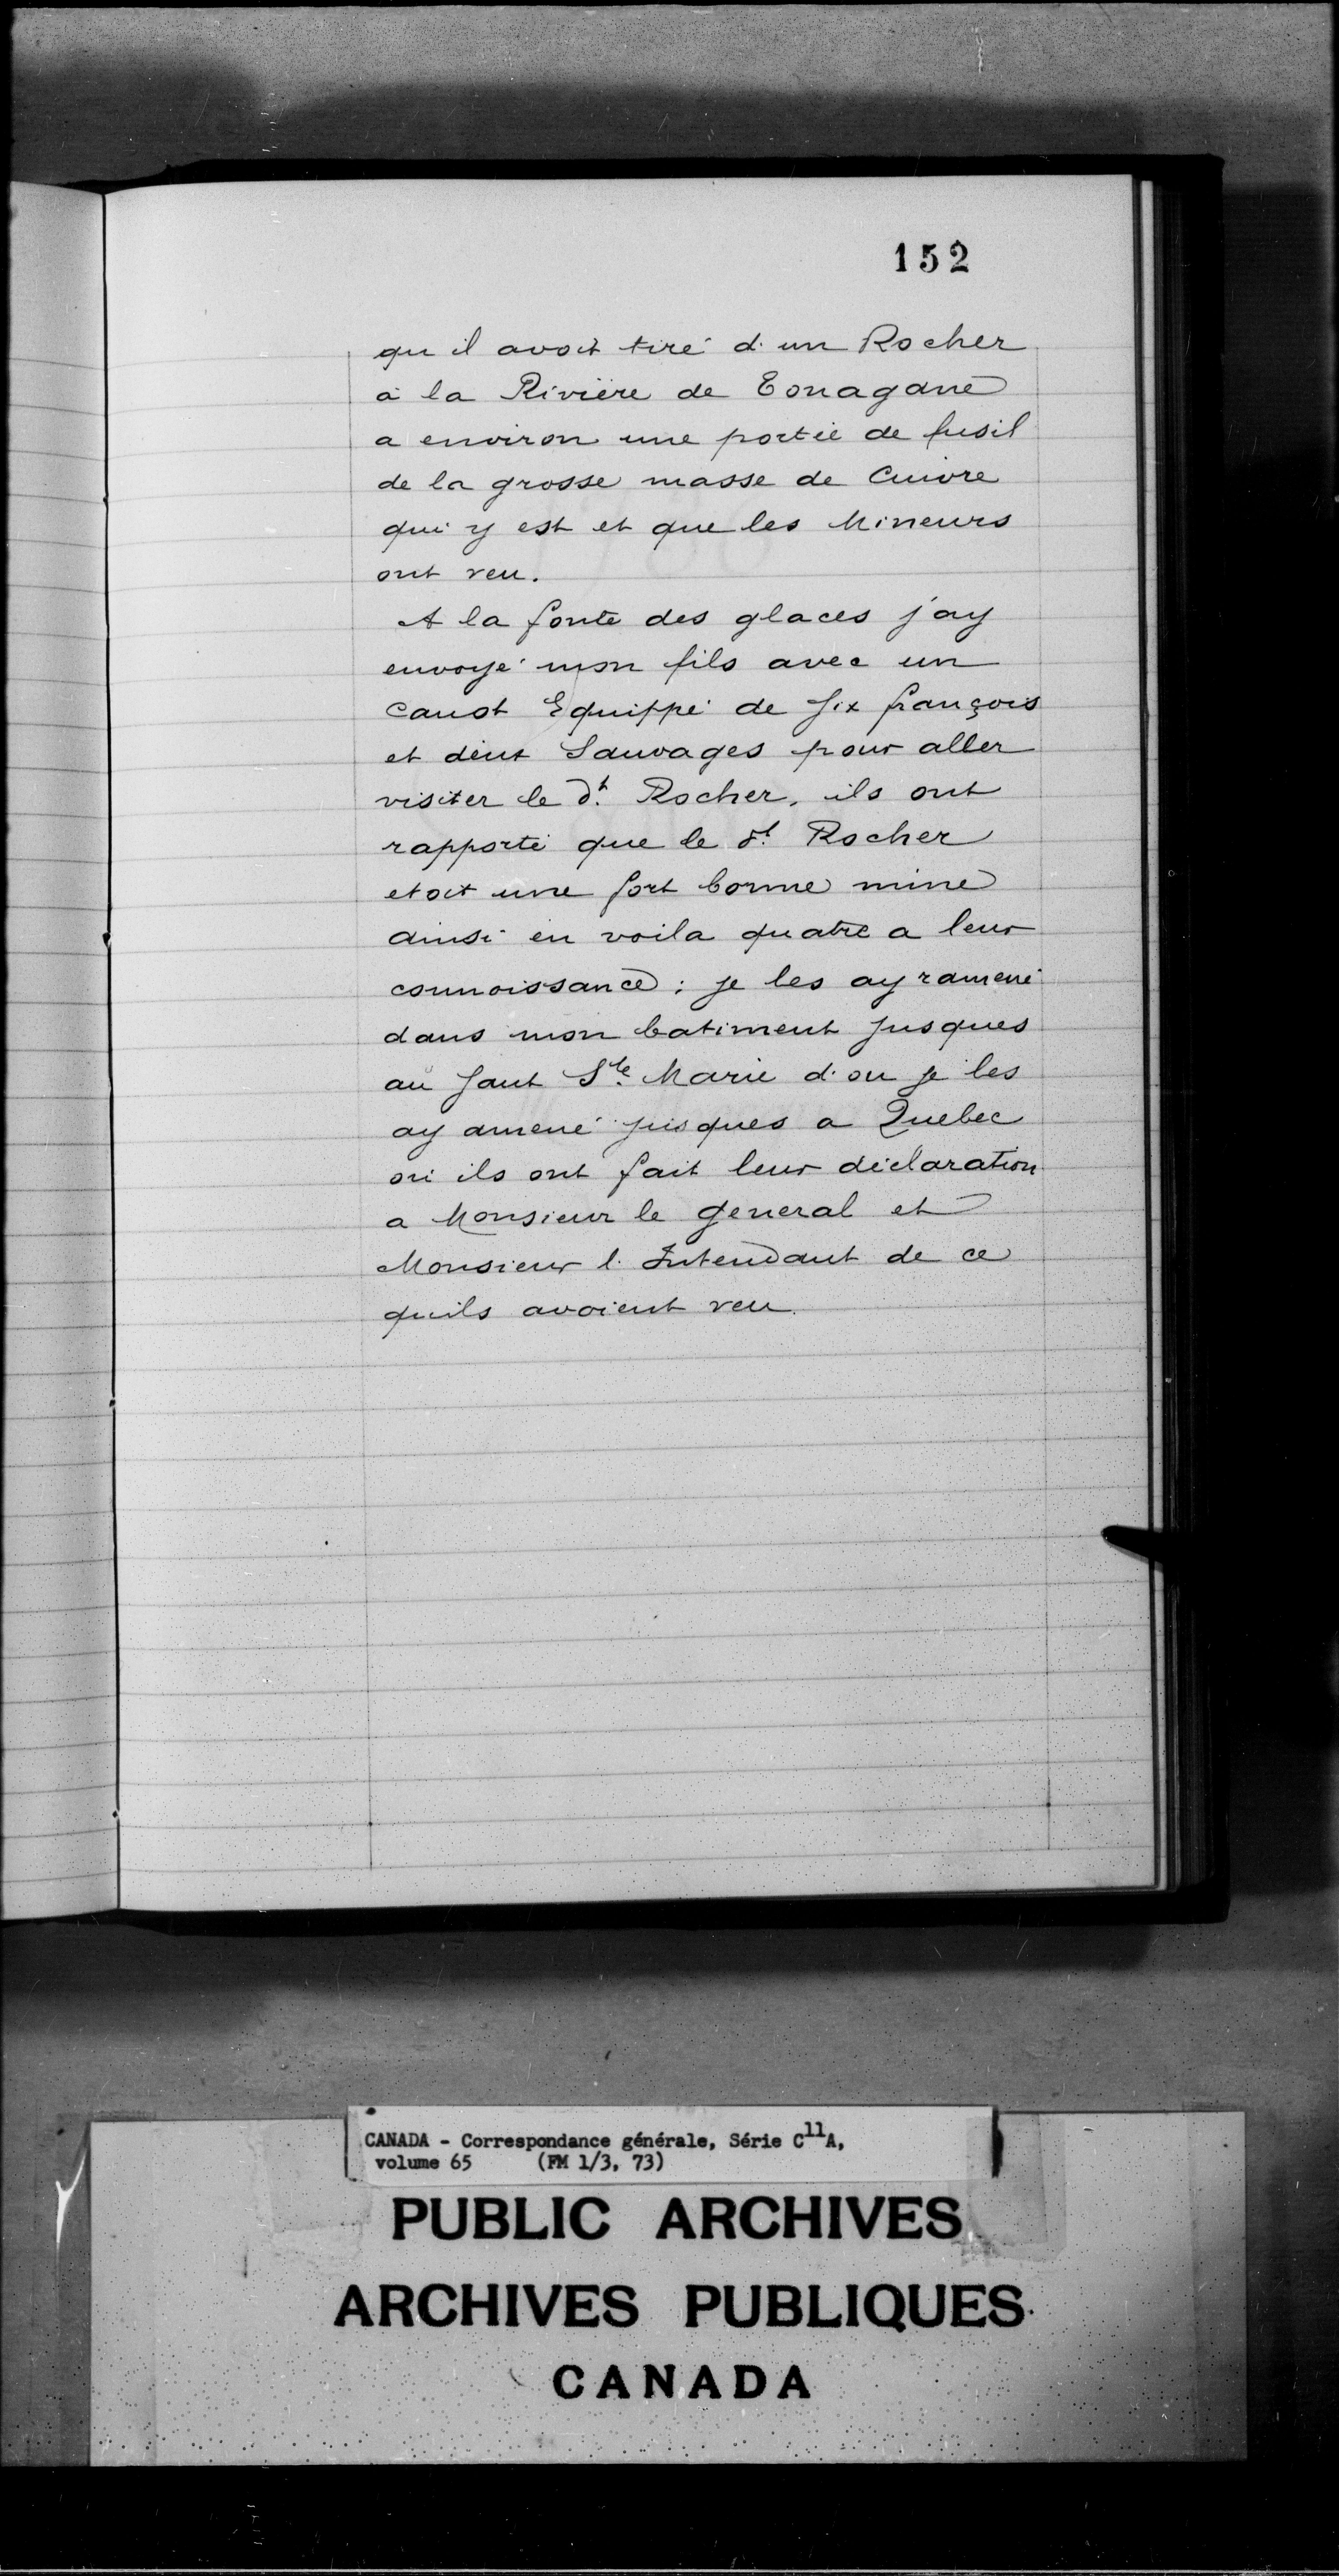 152
qu il avoit tiré d'un Rocher
à la Rivière de Tonagane
a environ une portée de fusil
de la grosse masse de Cuivre
qui y est et que les Mineurs
ont veu.
A la fonte des glaces j'ay
envoyé mon fils avec un
canot Equippé de six françois
et deux Sauvages pour aller
visiter le dt. Rocher, ils ont
rapporté que le dt. Rocher
etoit une fort bonne mine
ainsi en voila quatre a leur
connoissance ; je les ay ramené
dans mon batiment jusques
au saut Ste. Marie d'ou je les
ay amené jusques a Quebec
où ils ont fait leur déclaration
a Monsieur le general et
Monsieur l'Intendant de ce
quils avoient veu.
CANADA - Correspondance générale, Série C11A,
volume 65 (FM 1/3, 73)
PUBLIC ARCHIVES
ARCHIVES PUBLIQUES
CANADA